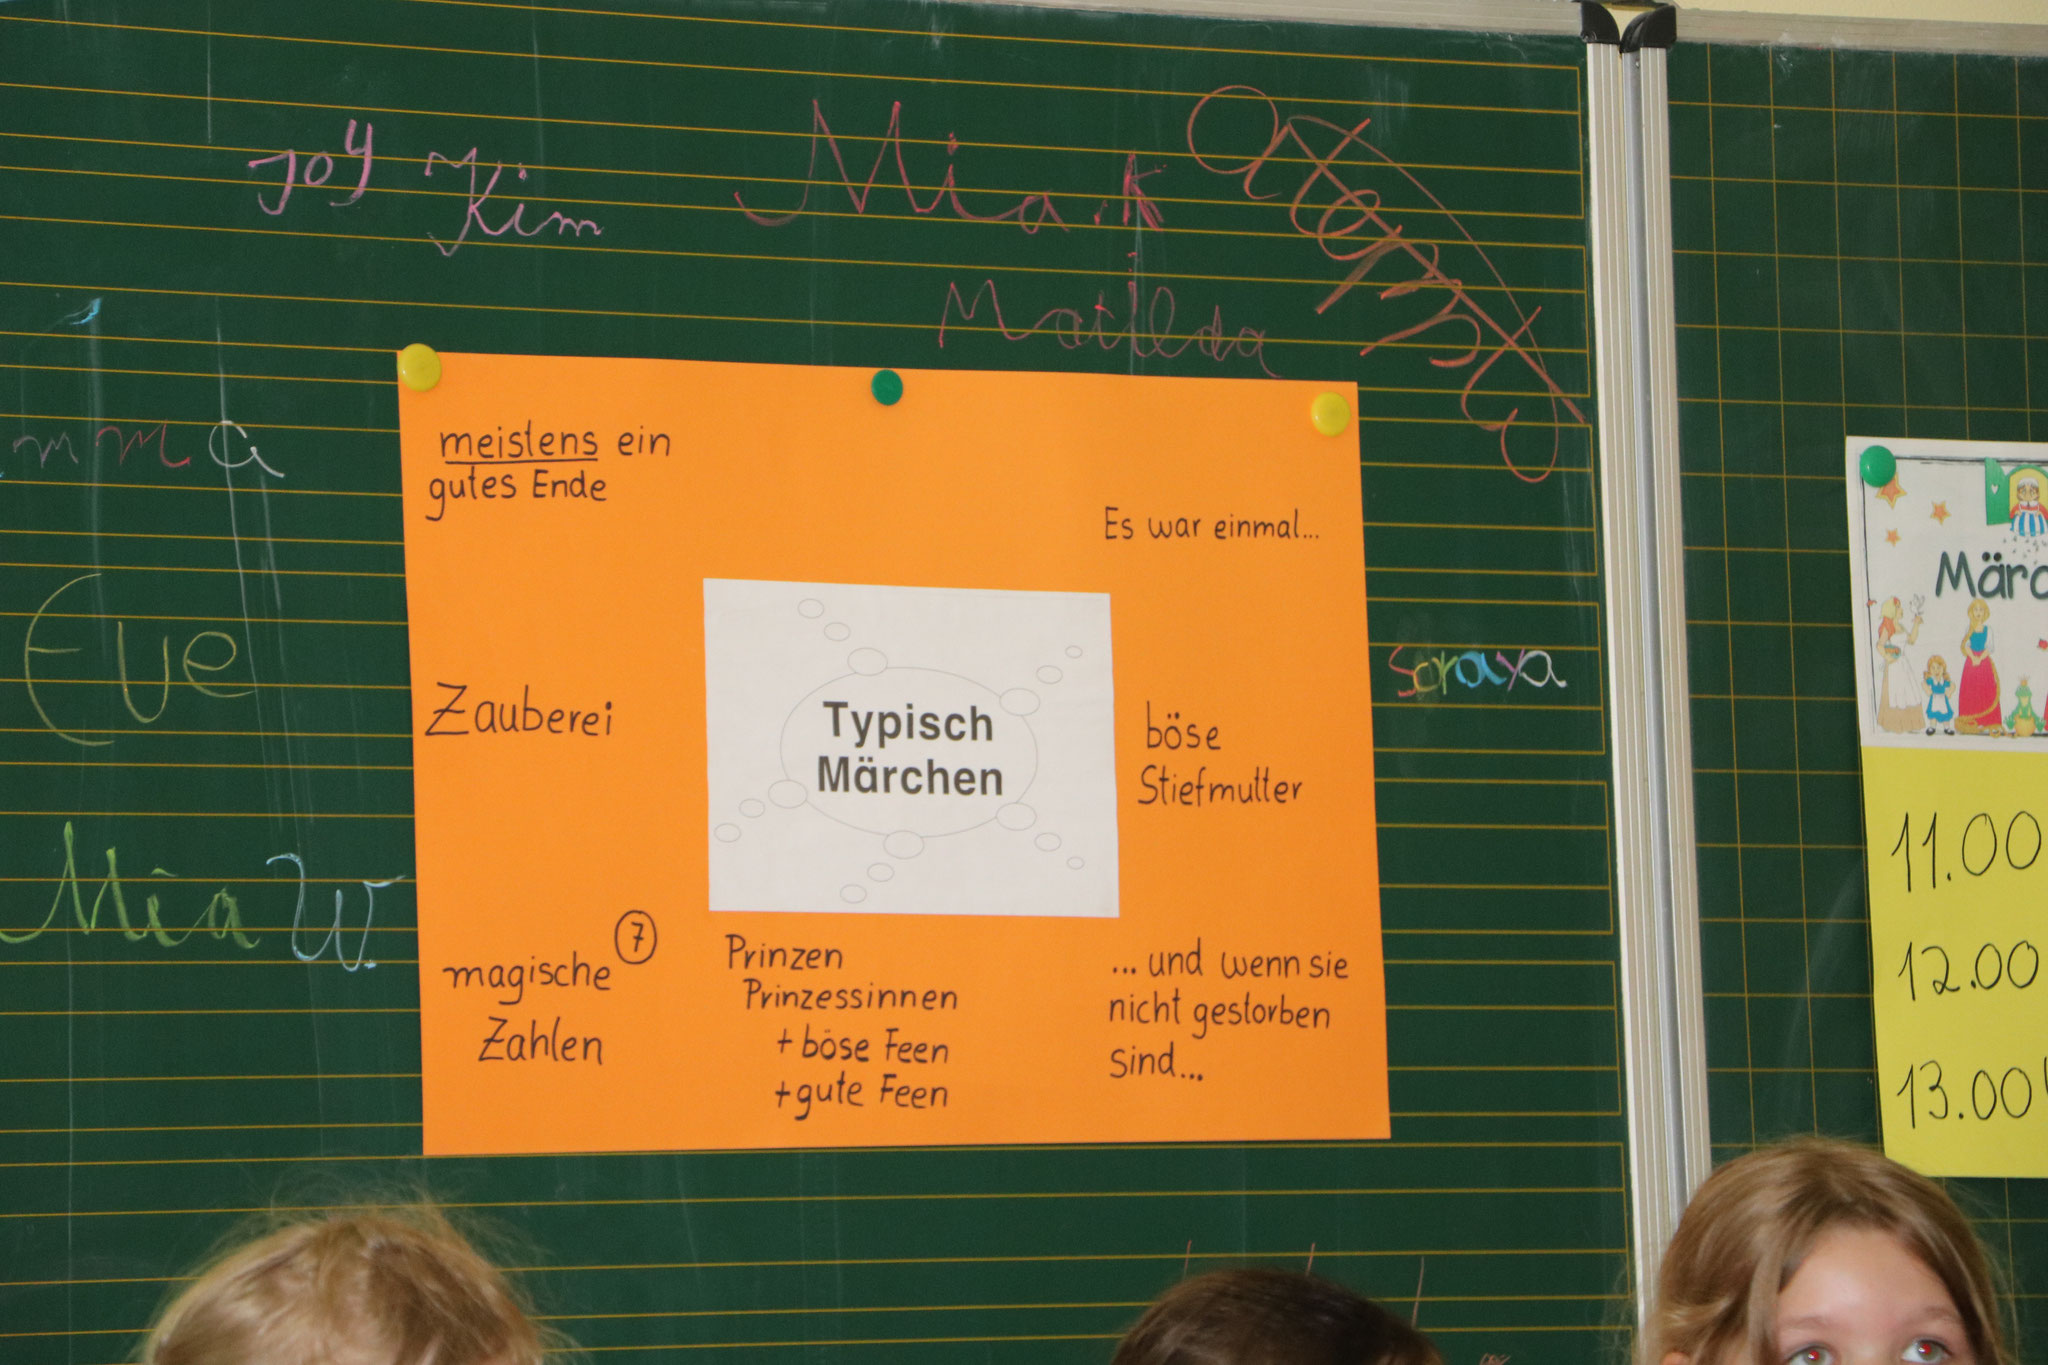 Joy Kim
Mia.K
Matilda
mma
Eve
Mia W.
Soraya
meistens ein
gutes Ende
Es war einmal...
Zauberei
Typisch
Märchen
böse
Stiefmutter
magische 7
Zahlen
Prinzen
Prinzessinnen
+ böse Feen
+ gute Feen
... und wenn sie
nicht gestorben
sind...
Märc
11.00
12.00
13.00